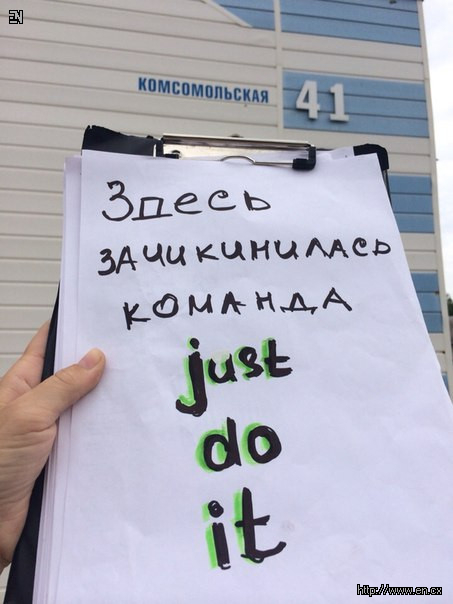 EN
КОМСОМОЛЬСКАЯ 41
Здесь
ЗАЧИКИНИЛАСЬ
КОМАНДА
just
do
it
http://www.en.cx